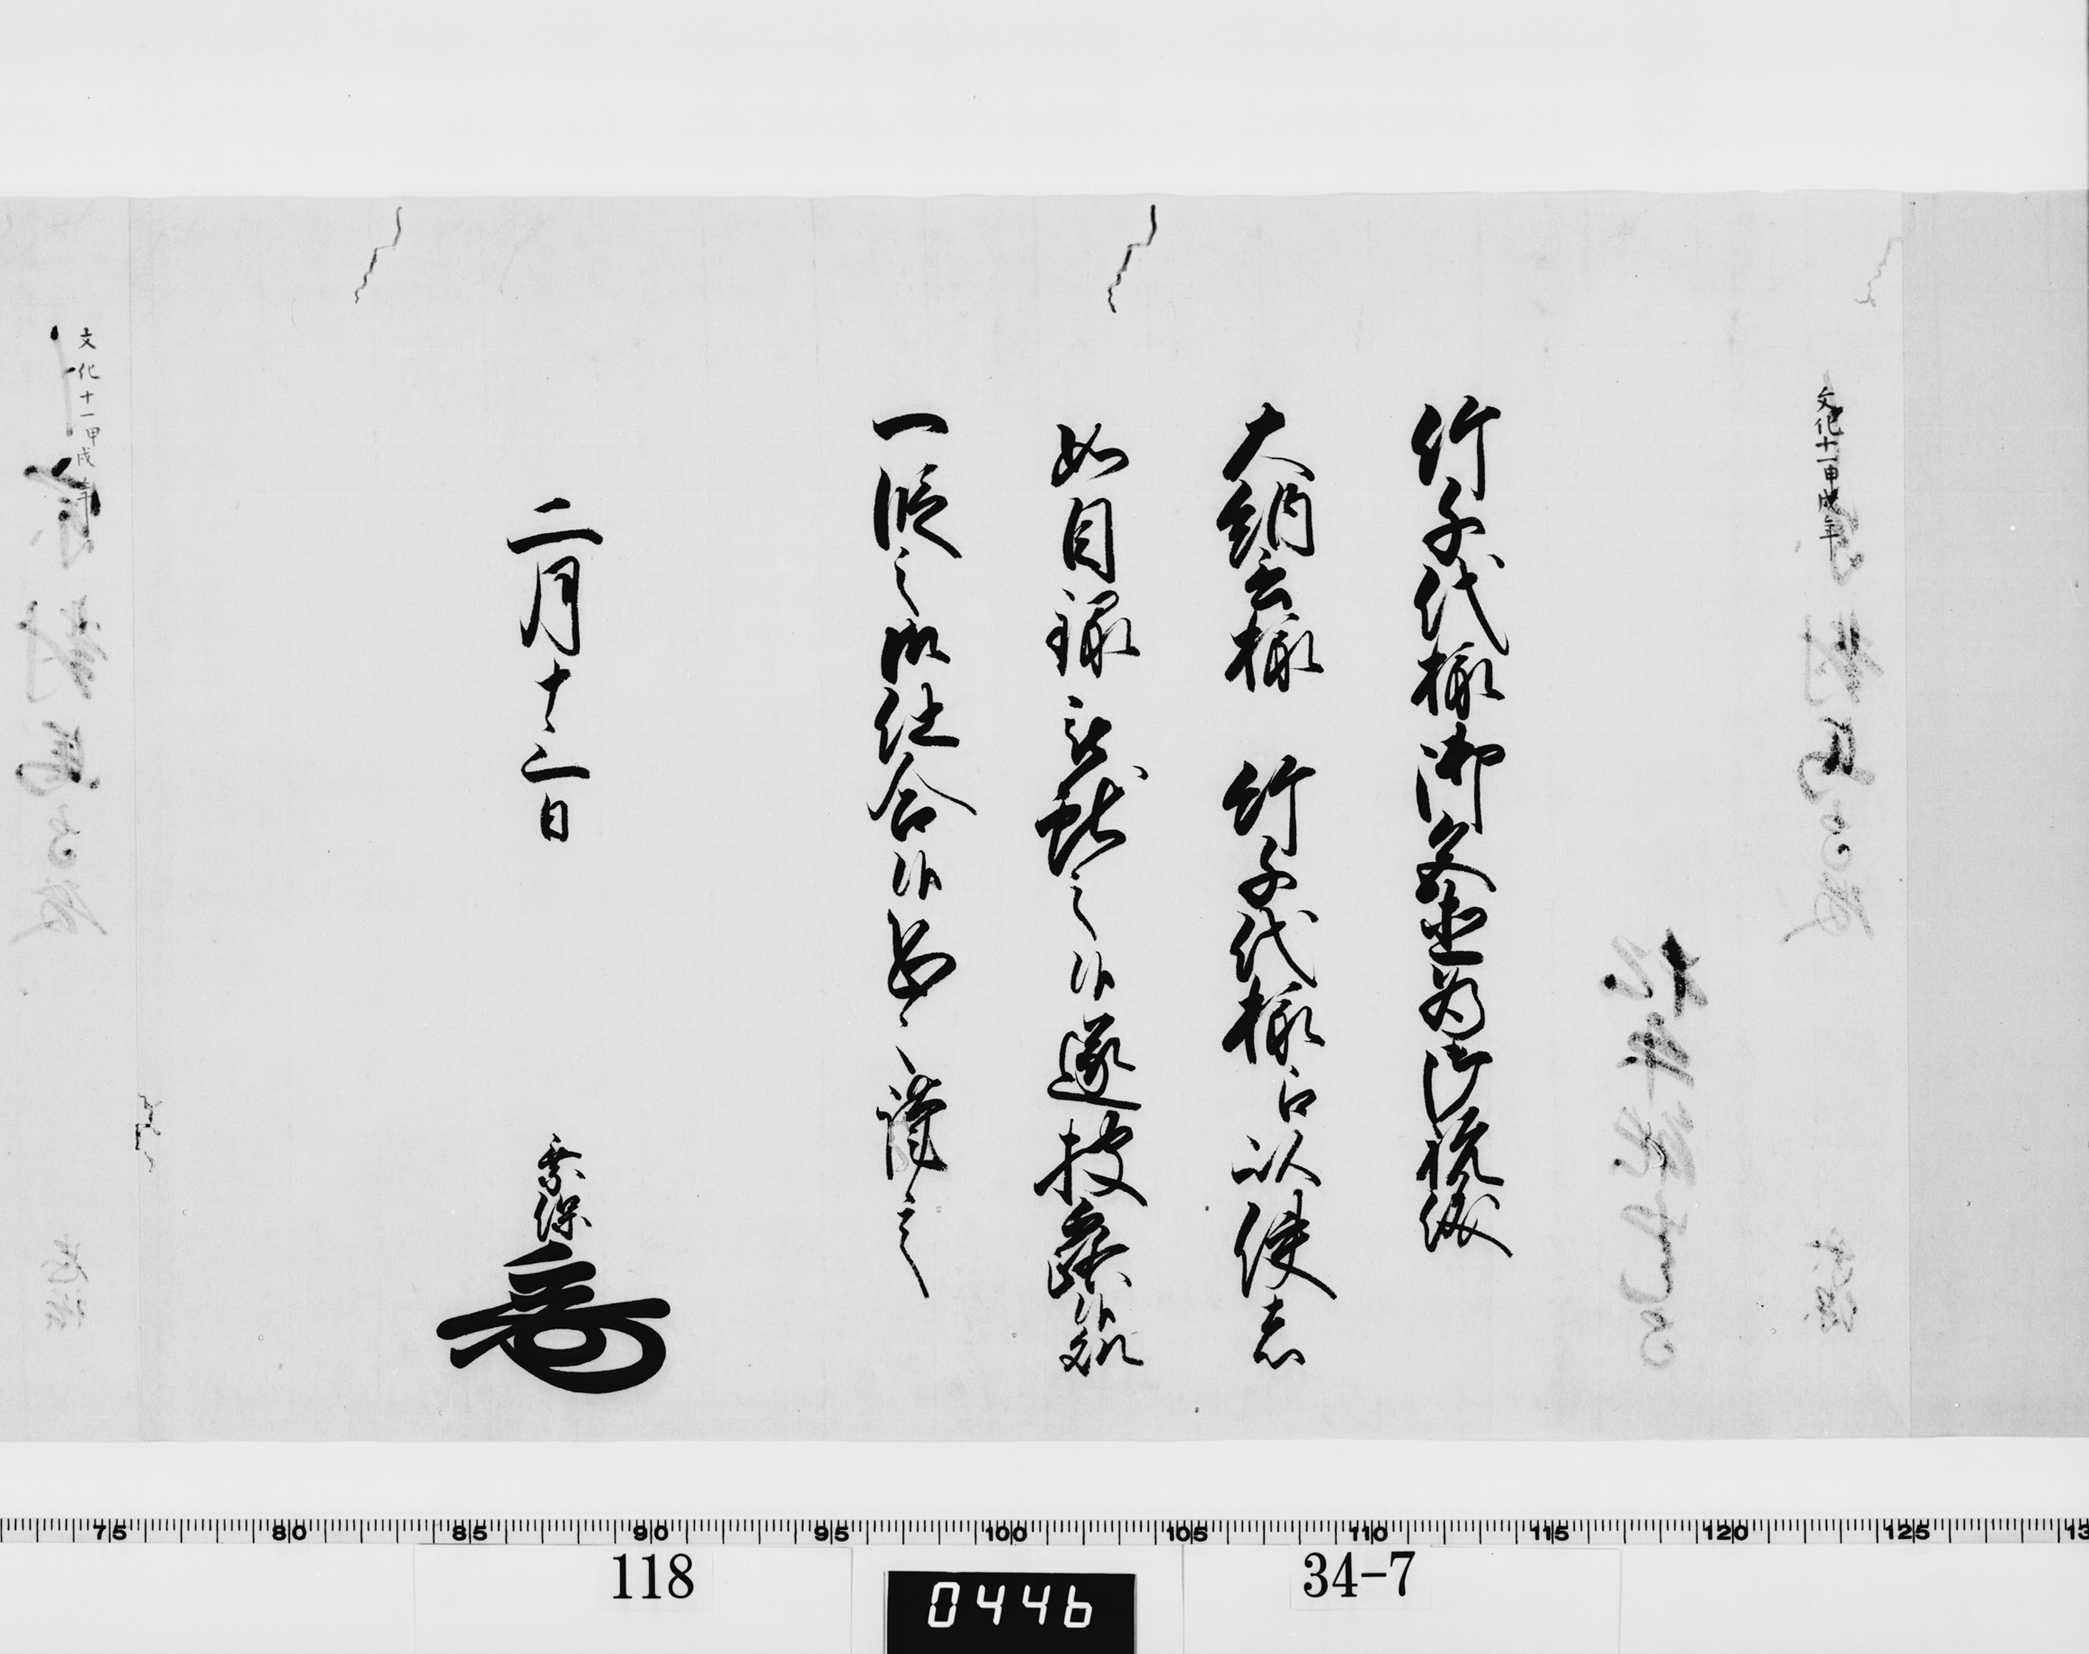 文化十一甲戌年
竹千代様御灸並為御祝儀
大納言様　竹千代様江以使者
如目録被献之候遂披露候処
一段之御仕合候恐々謹言
二月十三日
乗保
文化十一甲戌年
75 80 85 90 95 100 105 110 115 120 125 13
118
0446
34-7